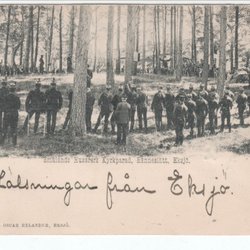 Smålands Husarers Kyrkparad, Rännesslätt, Eksjö.
Hälsningar från Eksjö.
OSCAR HELANDER, EKSJÖ.